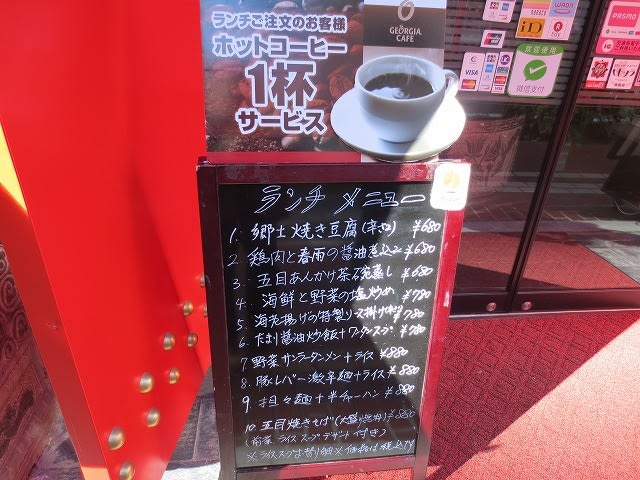 ランチご注文のお客様
ホットコーヒー
1杯
サービス
GEORGIA
CAFE
PASMO
iD
VISA
欢迎使用
微信支付
ランチ メニュー
1. 郷土焼き豆腐(辛口) ¥680
2 鶏肉と春雨の醤油煮込み ¥680
3. 五目あんかけ茶碗蒸し ¥680
4. 海鮮と野菜の塩炒め ¥780
5. 海老揚げの特製ソース掛け ¥780
6. たまり醤油炒飯+ワンタンスープ ¥780
7 野菜サンラータンメン+ライス ¥880
8. 豚レバー激辛麺+ライス ¥880
9 担々麺+半チャーハン ¥880
10. 五目焼きそば(大盛無料) ¥880
(前菜 ライス スープ デザート 付き)
※ライス スープはお替り無料 ※価格は税込です